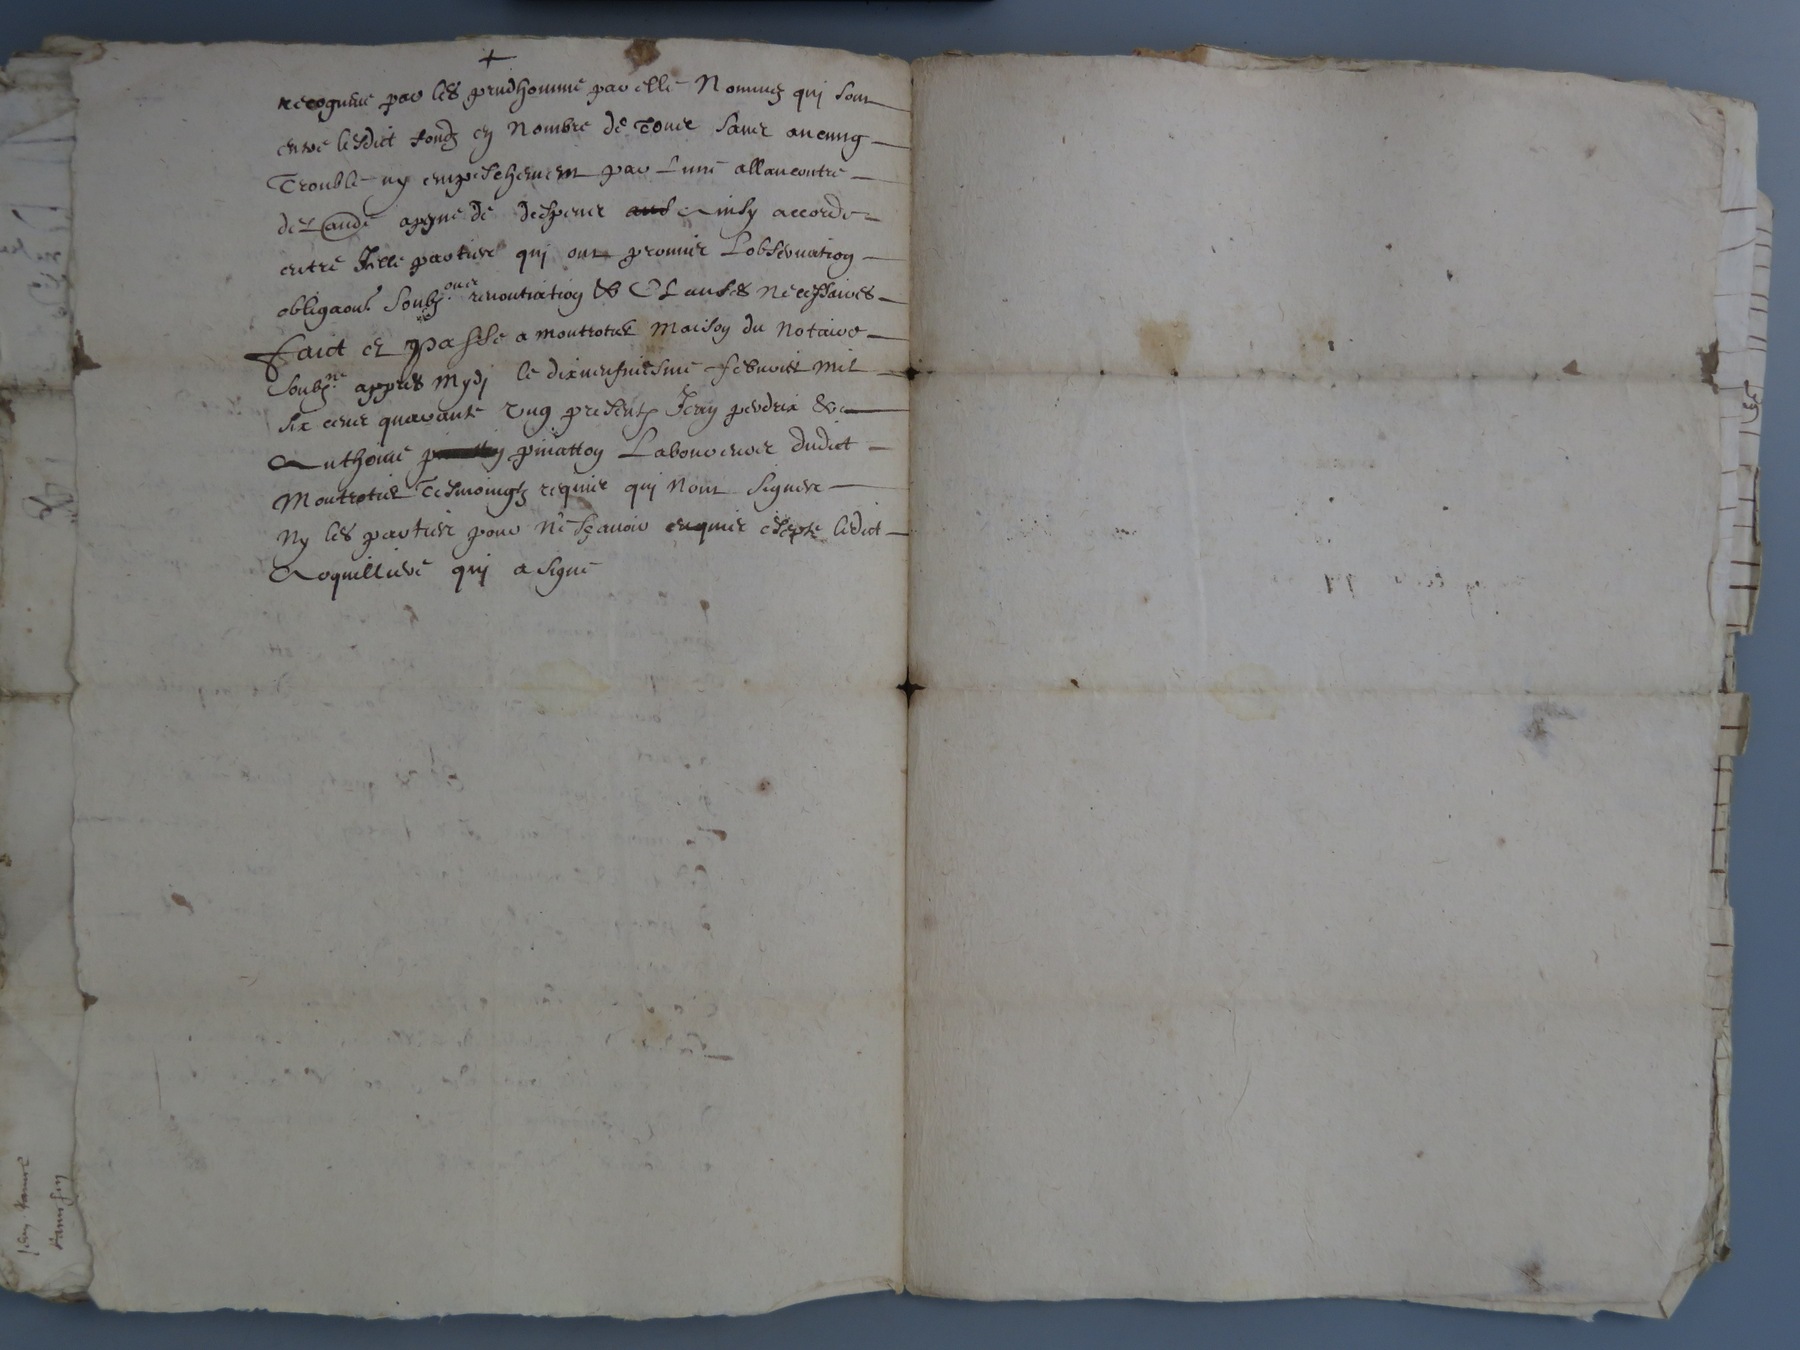 +
recognue par les prudhomme par elle Nommes qui sont
entre lesdict fondz en Nombre de sans aucung
Trouble ny empeschement par Lune allancontre
de Lautre appyne de despens Ainsy accorde
entre parties qui ont promis Lobservation
obligaons soubz renontiation & Clauses necessaires
faict et passe a montrotier maison du notaire
soubzne appres mydi le dixneufviesme febvrier mil
six cens quarante ung presentz Jean perdrix &
Anthoine pinatton Laboureurs dudict
Montrotier Tesmoingtz requis qui nont signer
Ny les parties pour ne sçavoir enquis ledict
Coquilliere qui a signe